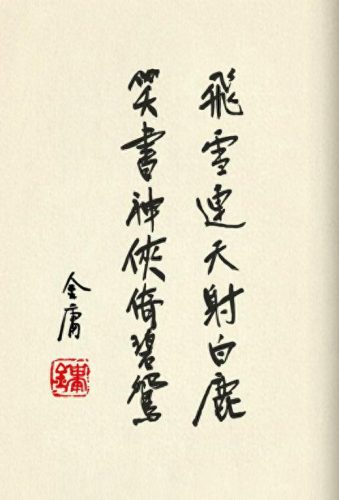 飛雪連天射白鹿
笑書神俠倚碧鴛
金庸
鏞